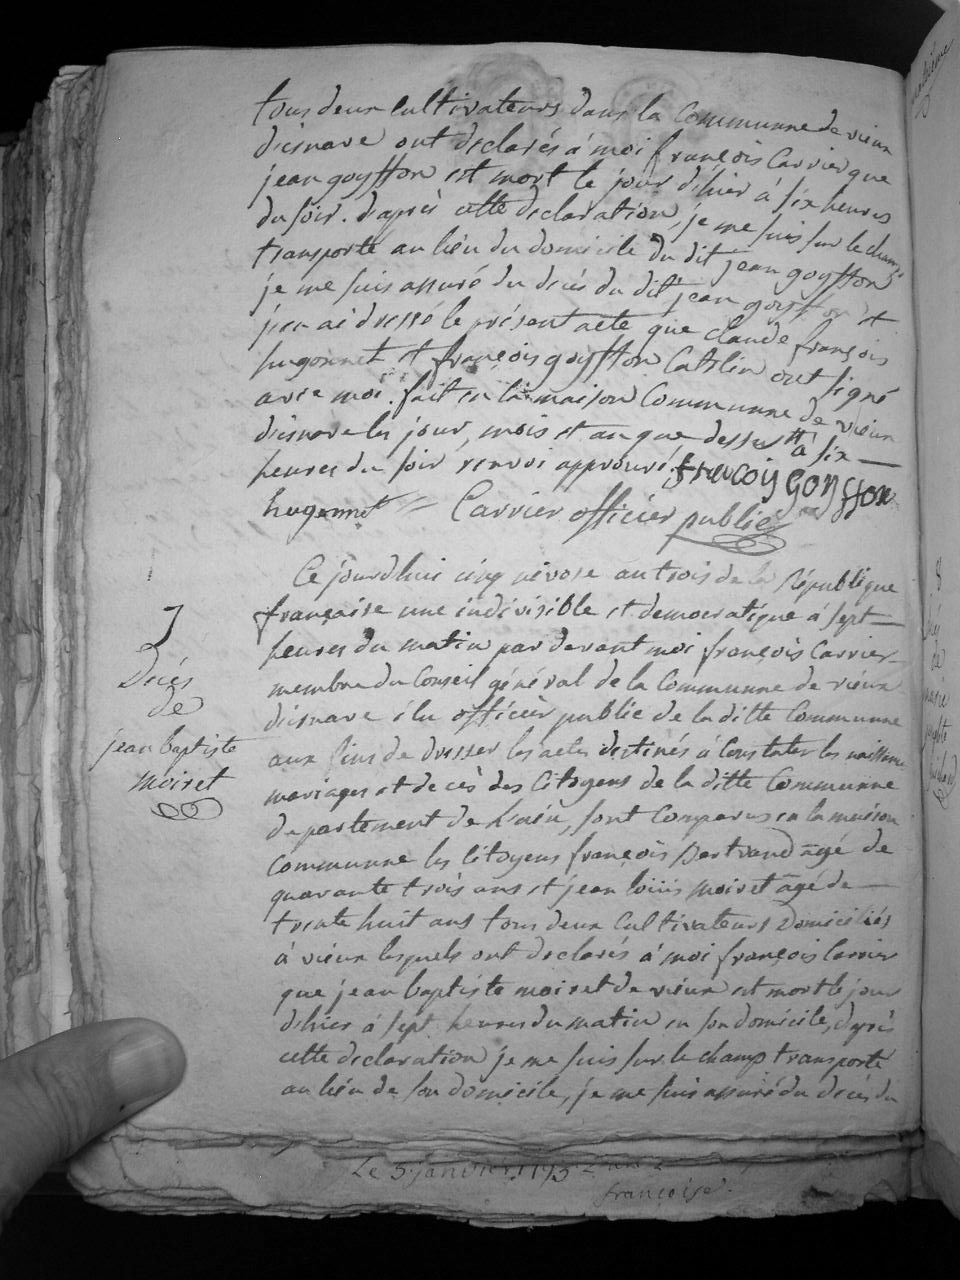 tous deux Cultivateurs dans la Communne de vieux
disnave ont declarés à moi françois Carrier que
jean goyffon est mort le jour d'hier à six heures
du soir. d'après cette declaration, je me suis sur le champ
transporté au lieu du domicile du dit jean goyffon
je me suis assuré du decès du dit jean goyffon et
j'en ai dressé le présent acte que claude françois
hugonnet et françois goyffon Catelin ont signé
avec moi. fait en la maison Communne de vieux
disnave les jour, mois et an que dessus # à six
heures du soir renvoi approuvé. francois goyffon
hugonnet Carrier officier public
Ce jourdhui cinq nivose an trois de la République
française une indivisible et democratique à sept
heures du matin par devant moi françois Carrier
membre du Conseil général de la Communne de vieux
disnave élu officier public de la ditte Communne
aux fins de dresser les actes destinés à Constater les naissance
mariages et decès des Citoyens de la ditte Communne
departement de l'ain, sont Comparus en la maison
Communne les Citoyens françois pertrand âgé de
quarante trois ans et jean louis moiret âgé de
trente huit ans tous deux Cultivateurs Domiciliés
à vieux lesquels ont declarés à moi françois Carrier
que jean baptiste moiret de vieux est mort le jour
d'hier à sept heures du matin en son domicile, d'après
cette declaration je me suis sur le champ transporté
au lieu de son domicile, je me suis assuré du decès du
7
Decés
de
jean baptiste
moiret
Le 3 janvier 1793
françoise